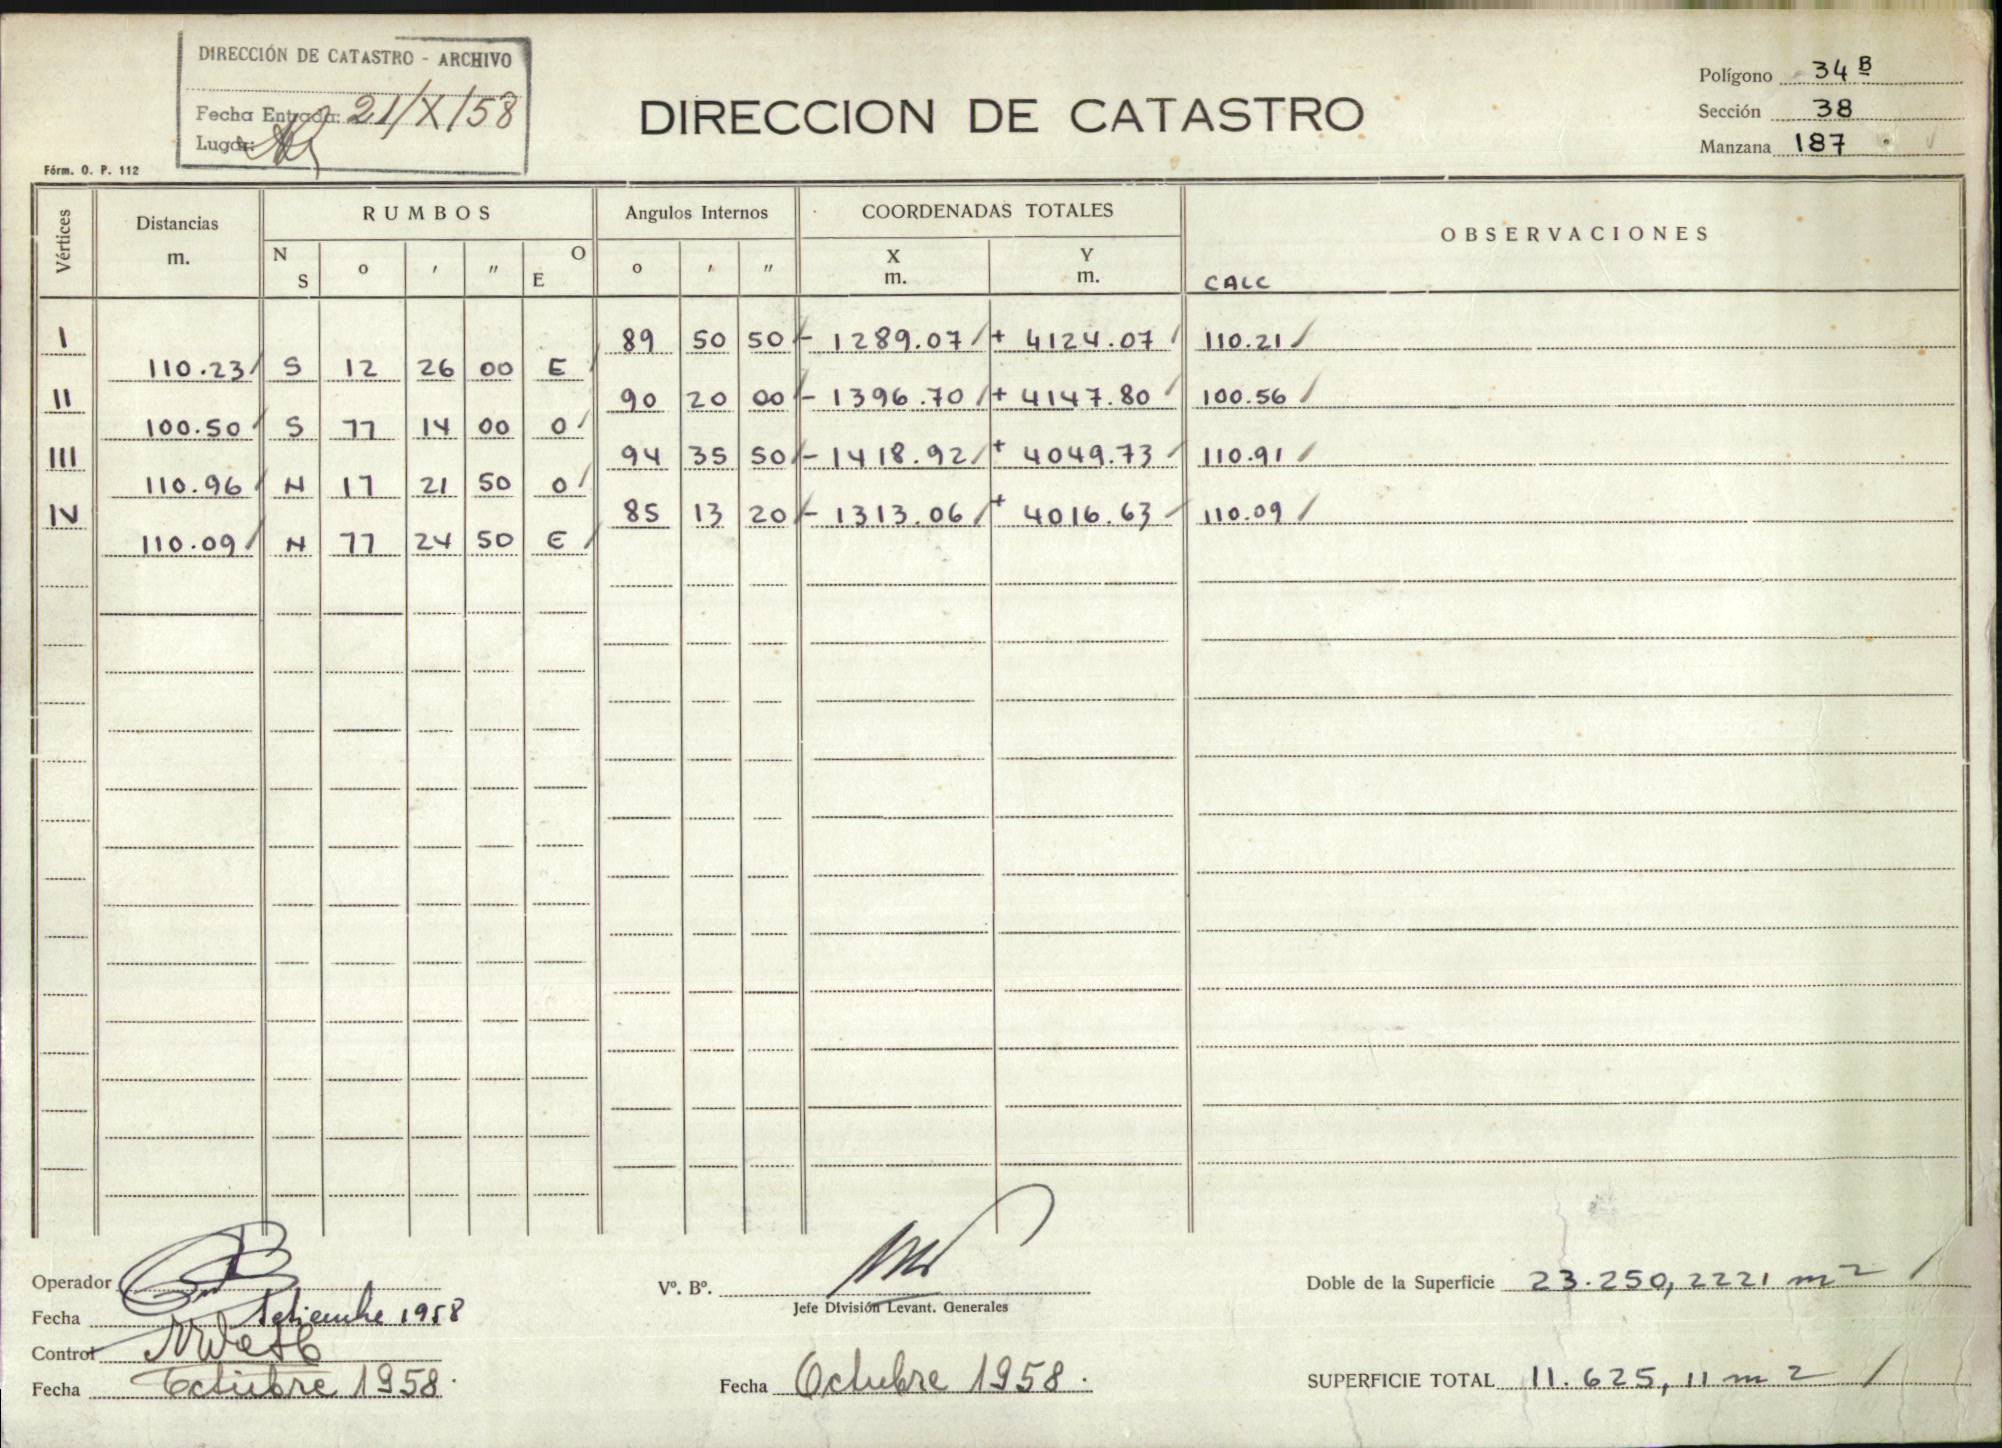 DIRECCIÓN DE CATASTRO - ARCHIVO
Fecha Entrada: 21/X/58
Lugar:
Fórm. O. P. 112
DIRECCION DE CATASTRO
Polígono 34 B
Sección 38
Manzana 187
Vértices Distancias m. RUMBOS Angulos Internos COORDENADAS TOTALES OBSERVACIONES
N S o ′ ″ O E o ′ ″ X m. Y m. CALC
I 89 50 50 - 1289.07 + 4124.07 110.21
110.23 S 12 26 00 E
II 90 20 00 - 1396.70 + 4147.80 100.56
100.50 S 77 14 00 O
III 94 35 50 - 1418.92 + 4049.73 110.91
110.96 N 17 21 50 O
IV 85 13 20 - 1313.06 + 4016.63 110.09
110.09 N 77 24 50 E
Operador
Fecha Setiembre 1958
Control
Fecha Octubre 1958.
Vº. Bº.
Jefe División Levant. Generales
Fecha Octubre 1958.
Doble de la Superficie 23.250,2221 m2
SUPERFICIE TOTAL 11.625,11 m2